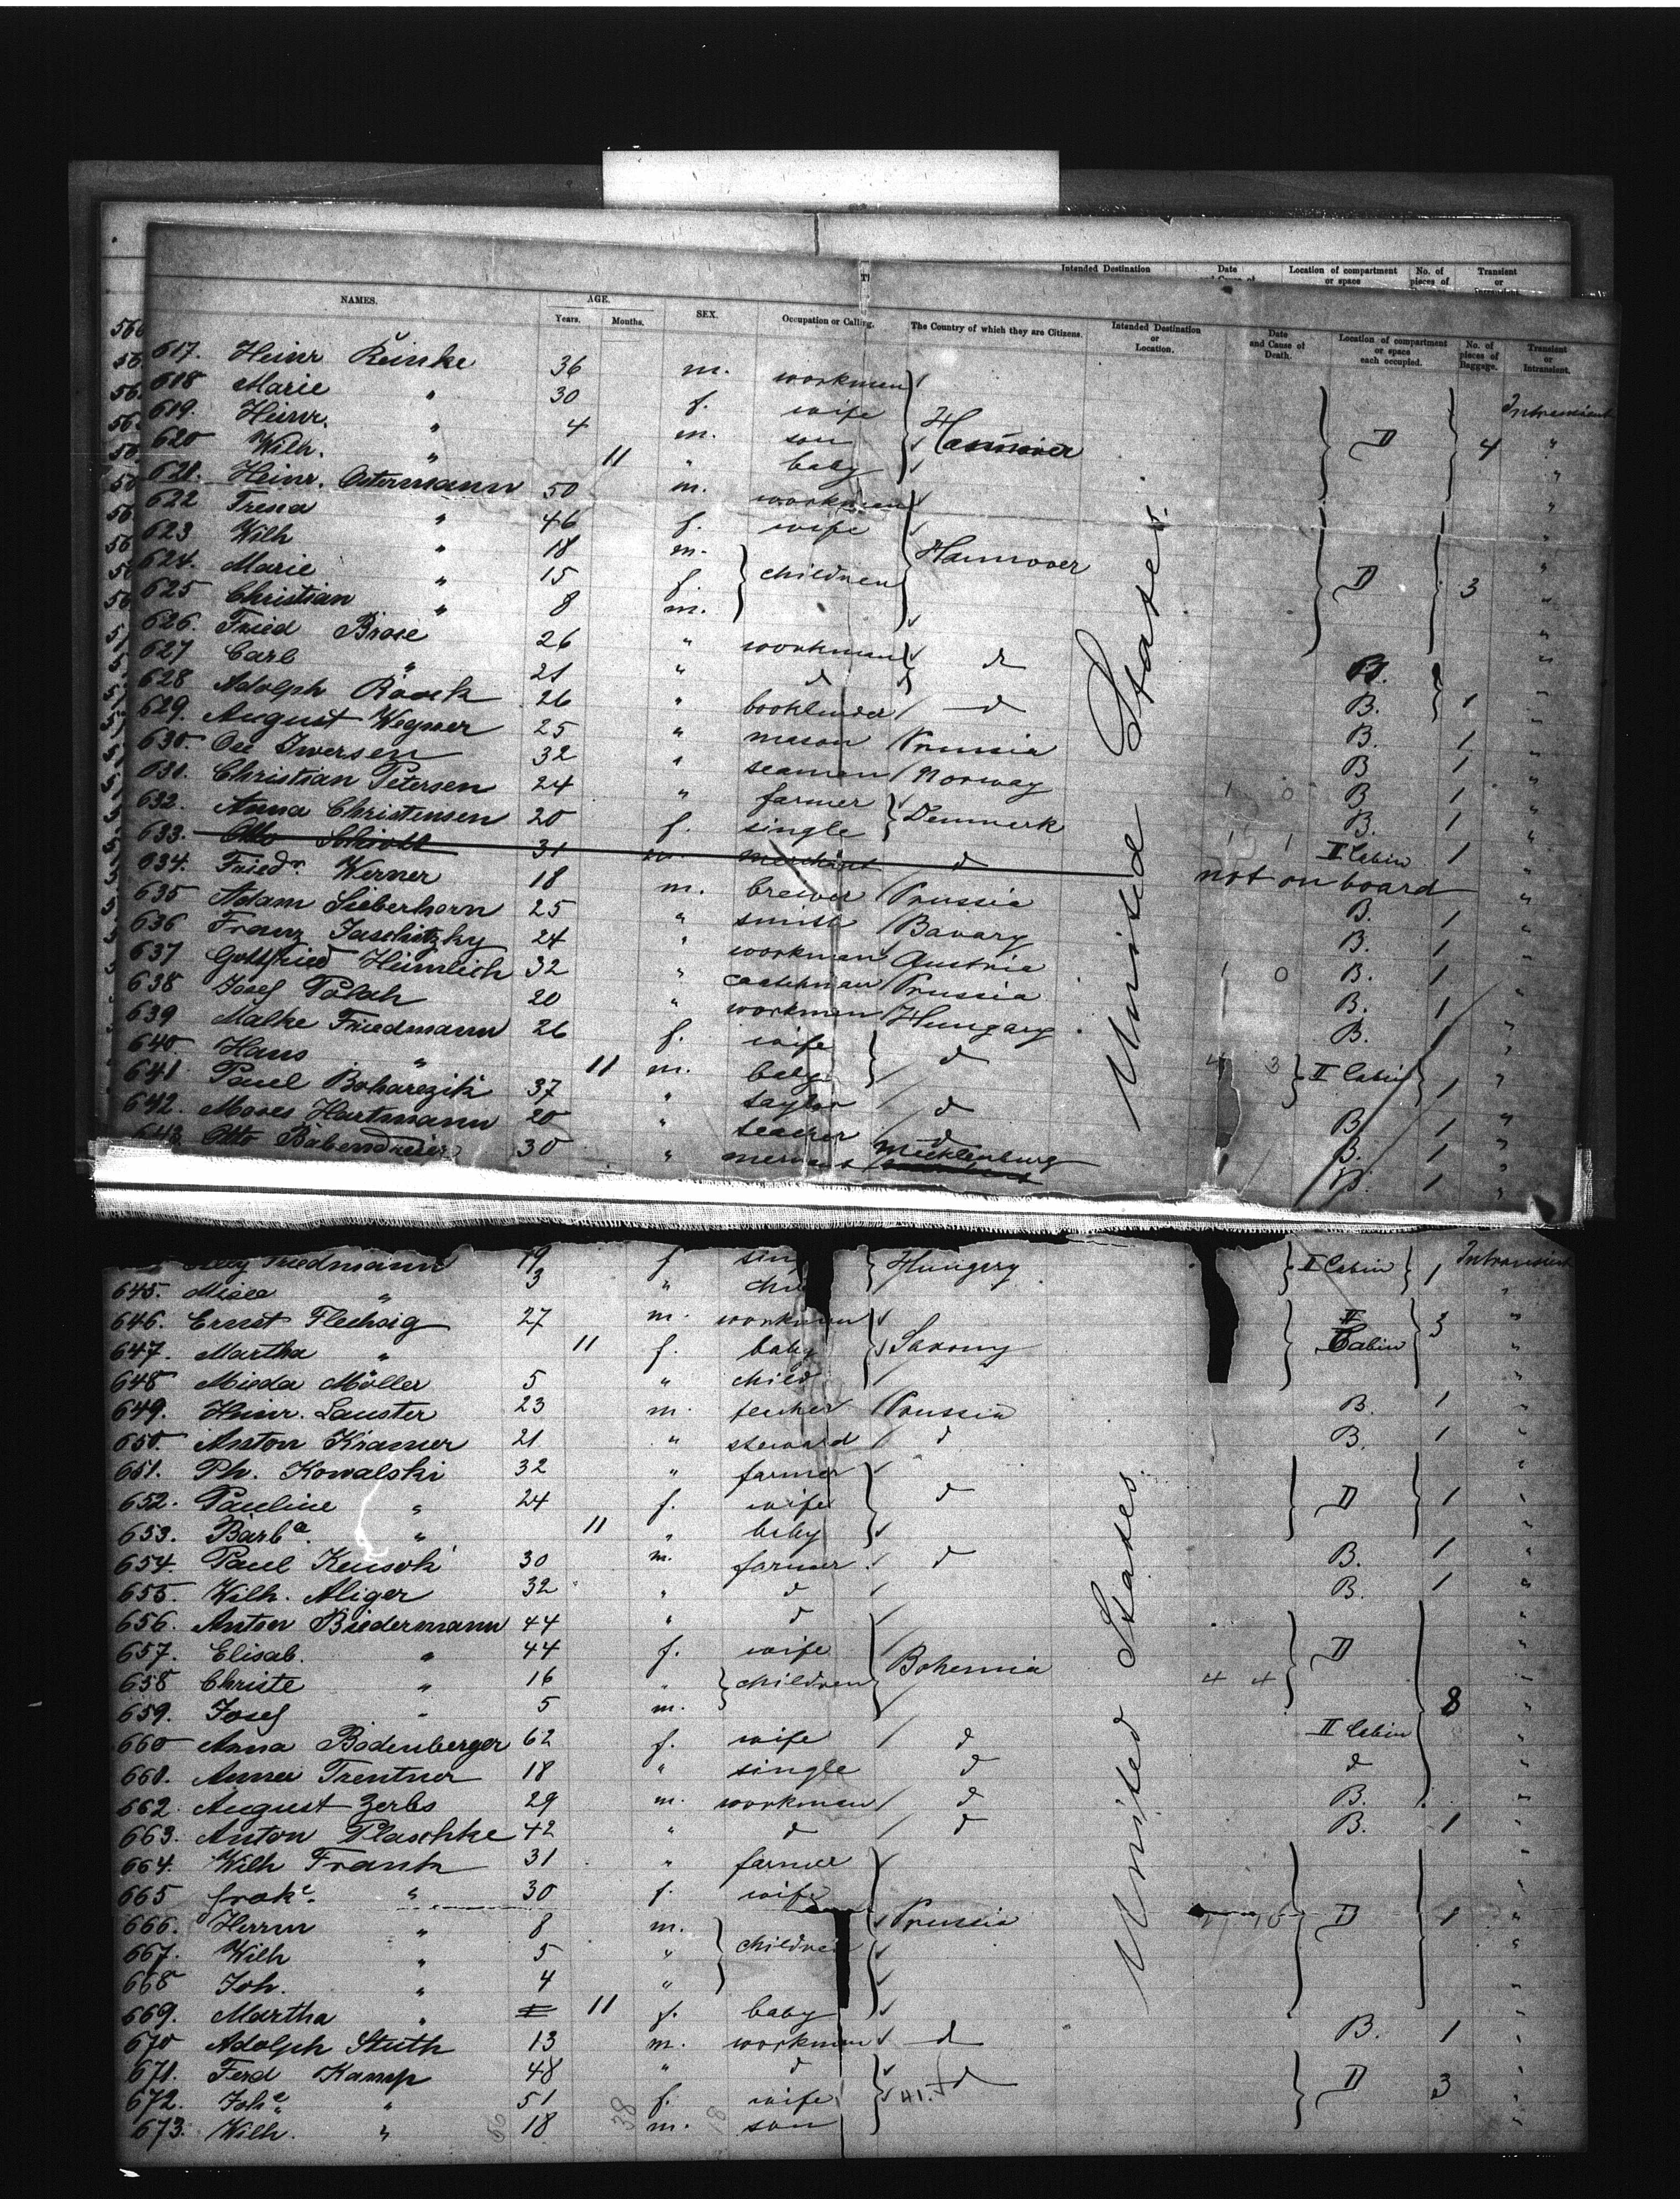 Intended Destination Date Location of compartment or space No. of pieces of Transient or
NAMES. AGE. Years. Months. SEX. Occupation or Calling. The Country of which they are Citizens. Intended Destination or Location. Date and Cause of Death. Location of compartment or space each occupied. No. of pieces of Baggage. Transient or Intransient.
617. Heinr Reinke 36 m. workman
618 Marie " 30 f. wife Intransient
619. Heinr. " 4 m. son Hannover D 4 "
620 Wilh. " 11 " baby "
621. Heinr. Ostermann 50 m. workman "
622 Tresa " 46 f. wife "
623 Wilh " 18 m. Hannover "
624. Marie " 15 f. children D 3 "
625 Christian " 8 m. "
626. Fried Brose 26 " workman d "
627 Carl " 21 " d B. "
628 Adolph Raack 26 " bookbinder d B. 1 "
629. August Wegner 25 " mason Prussia B. 1 "
630. Ole Iversen 32 " seaman Norway B 1 "
631. Christian Petersen 24 " farmer B 1 "
632. Anna Christensen 20 f. single Denmark B. 1 "
633. Otto 31 m. merchant d II Cabin 1
634. Friedr. Werner 18 m. brewer Prussia not on board "
635 Adam Lieberhorn 25 " smith Bavary B. 1 "
636 Franz Jaschitzky 24 " workman Austria B. 1 "
637 Gottfried Heimlich 32 " Prussia 1 0 B. 1 "
638 Josef Polah 20 " workman Hungary B. 1 "
639 Malke Friedmann 26 f. wife B. "
640 Hans " 11 m. baby d 4 3 II Cabin 1 "
641 Paul Boharezik 37 " taylor d B 1 "
642. Moses Hartmann 20 " teacher d B. 1 "
643 Otto Babendreier 30 " Mecklenburg B. 1 "
Friedmann 19 f sing Hungery II Cabin 1 Intransient
645. " 3 " chi "
646. Ernst Flechsig 27 m. workman II Cabin 3 "
647. Martha " 11 f. baby Saxony "
648 Mieda Möller 5 " child "
649. Heinr. Lauster 23 m. teacher Prussia B. 1 "
650. Anton Kramer 21 " steward d B. 1 "
651. Ph. Kowalski 32 " farmer "
652. Pauline " 24 f. wife d D 1 "
653. Barba. " 11 " baby "
654. Paul 30 m. farmer d B. 1 "
655. Wilh. Aliger 32 " d B. 1 "
656. Anton Biedermann 44 " d "
657. Elisab. " 44 f. wife Bohemia D "
658 Christe " 16 " children 4 4 "
659. Josef " 5 m. 8 "
660 Anna Bodenberger 62 f. wife d II Cabin "
661. Anna Trentner 18 " single d d "
662. August Zerbs 29 m. workman d B. "
663. Anton Plaschke 42 " d d B. 1 "
664. Wilh Frantz 31 " farmer "
665 " 30 f. wife "
666. Herrm " 8 m. Prussia D 1 "
667. Wilh " 5 " children "
668 Joh. " 4 " "
669. Martha " 11 f. baby "
670 Adolph Stuth 13 m. workman d B. 1 "
671. Ferd Kamp 48 " d d D 3 "
672. Johe. " 51 f. wife "
673. Wilh. " 18 m. son "
United States
United States